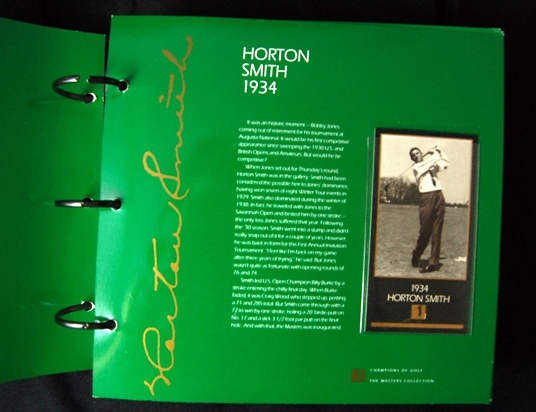 Horton Smith
HORTON
SMITH
1934
It was an historic moment – Bobby Jones
coming out of retirement for his tournament at
Augusta National. It would be his first competitive
appearance since sweeping the 1930 U.S. and
British Opens and Amateurs. But would he be
competitive?
When Jones set out for Thursday's round,
Horton Smith was in the gallery. Smith had been
considered the possible heir to Jones' dominance,
having won seven of eight Winter Tour events in
1929. Smith also dominated during the winter of
1930. In fact, he traveled with Jones to the
Savannah Open and bested him by one stroke –
the only loss Jones suffered that year. Following
the '30 season, Smith went into a slump and didn't
really snap out of it for a couple of years. However,
he was back in form for this First Annual Invitation
Tournament. "I feel like I'm back on my game
after three years of trying," he said. But Jones
wasn't quite as fortunate with opening rounds of
76 and 74.
Smith led U.S. Open Champion Billy Burke by a
stroke entering the chilly final day. When Burke
faded, it was Craig Wood who stepped up, posting
a 71 and 285 total. But Smith came through with a
72 to win by one stroke, holing a 20' birdie putt on
No. 17 and a slick 3 1/2 foot par putt on the final
hole. And with that, the Masters was inaugurated.
1934
HORTON SMITH
1
CHAMPIONS OF GOLF
THE MASTERS COLLECTION